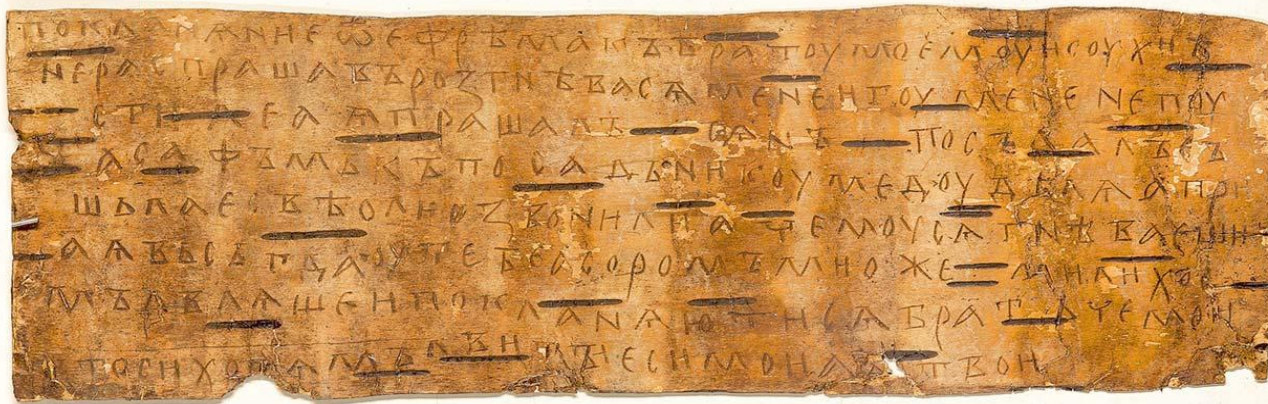 покланѧниеѿефрѣмакъбратоумоемоуисоухиѣ
нераспрашавърозгнѣвасѧмененигоуменепоу
стилеаѧпрашалъсѧнъпосълалъсъ
асафъмькъпосадьникоумедоудѣлѧапри
шьлаесвѣолизвонилиачемоусѧгнѣваеши
аѧвьсьгдаоутебеасоромъмиожемилихо
мълвлѧшеипокланѧютисѧбратьчемои
тосихотѧмълвитыесимоиаѧтвои